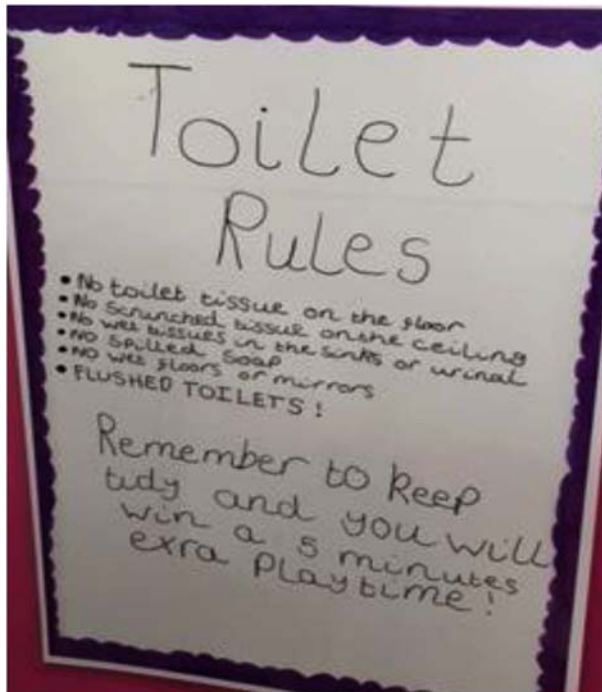 Toilet
Rules
• No toilet tissue on the floor
• No scrunched tissue on the ceiling
• No wet tissues in the sinks or urinal
• NO spilled soap
• NO wet floors or mirrors
• FLUSHED TOILETS !
Remember to keep
tidy and you will
win a 5 minutes
exra playtime !